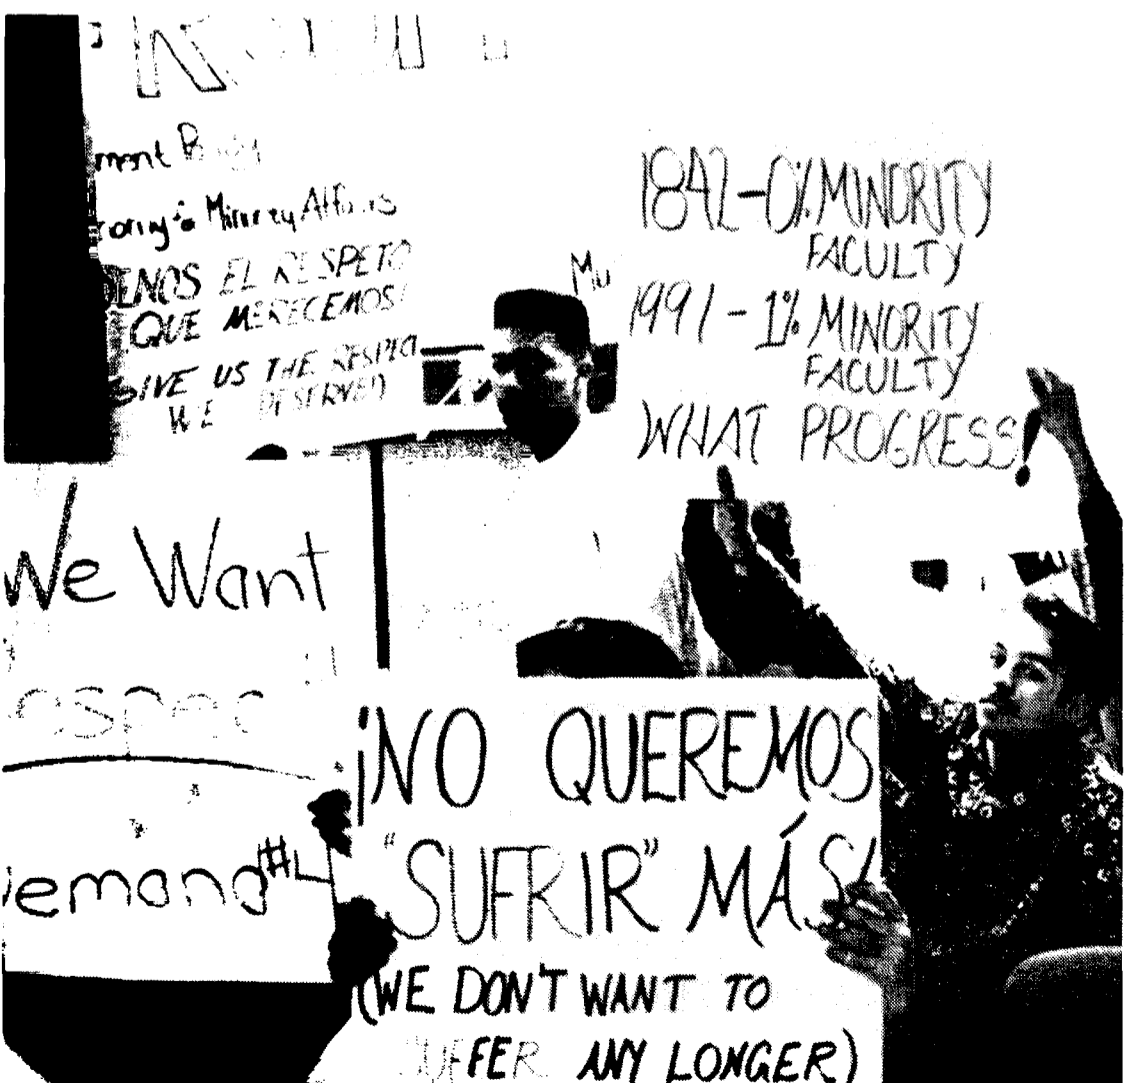 ENOS EL RESPETO
QUE MERECEMOS!
GIVE US THE RESPECT
WE DESERVE!)
Mu
1842-0% MINORITY
FACULTY
1991-1% MINORITY
FACULTY
WHAT PROGRESS!
We Want
emand #4
¡NO QUEREMOS
"SUFRIR" MÁS!
(WE DON'T WANT TO
SUFFER ANY LONGER)